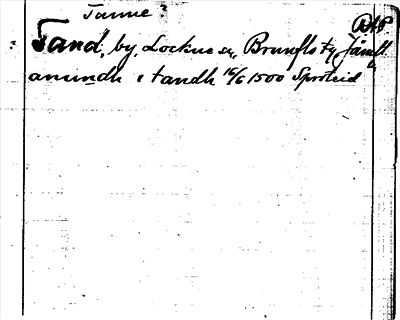 Tanne:
Tand, by, Lockne sn, Brunflo tg, Jämtl
anundh i tandh 16/6 1500 Sproteid